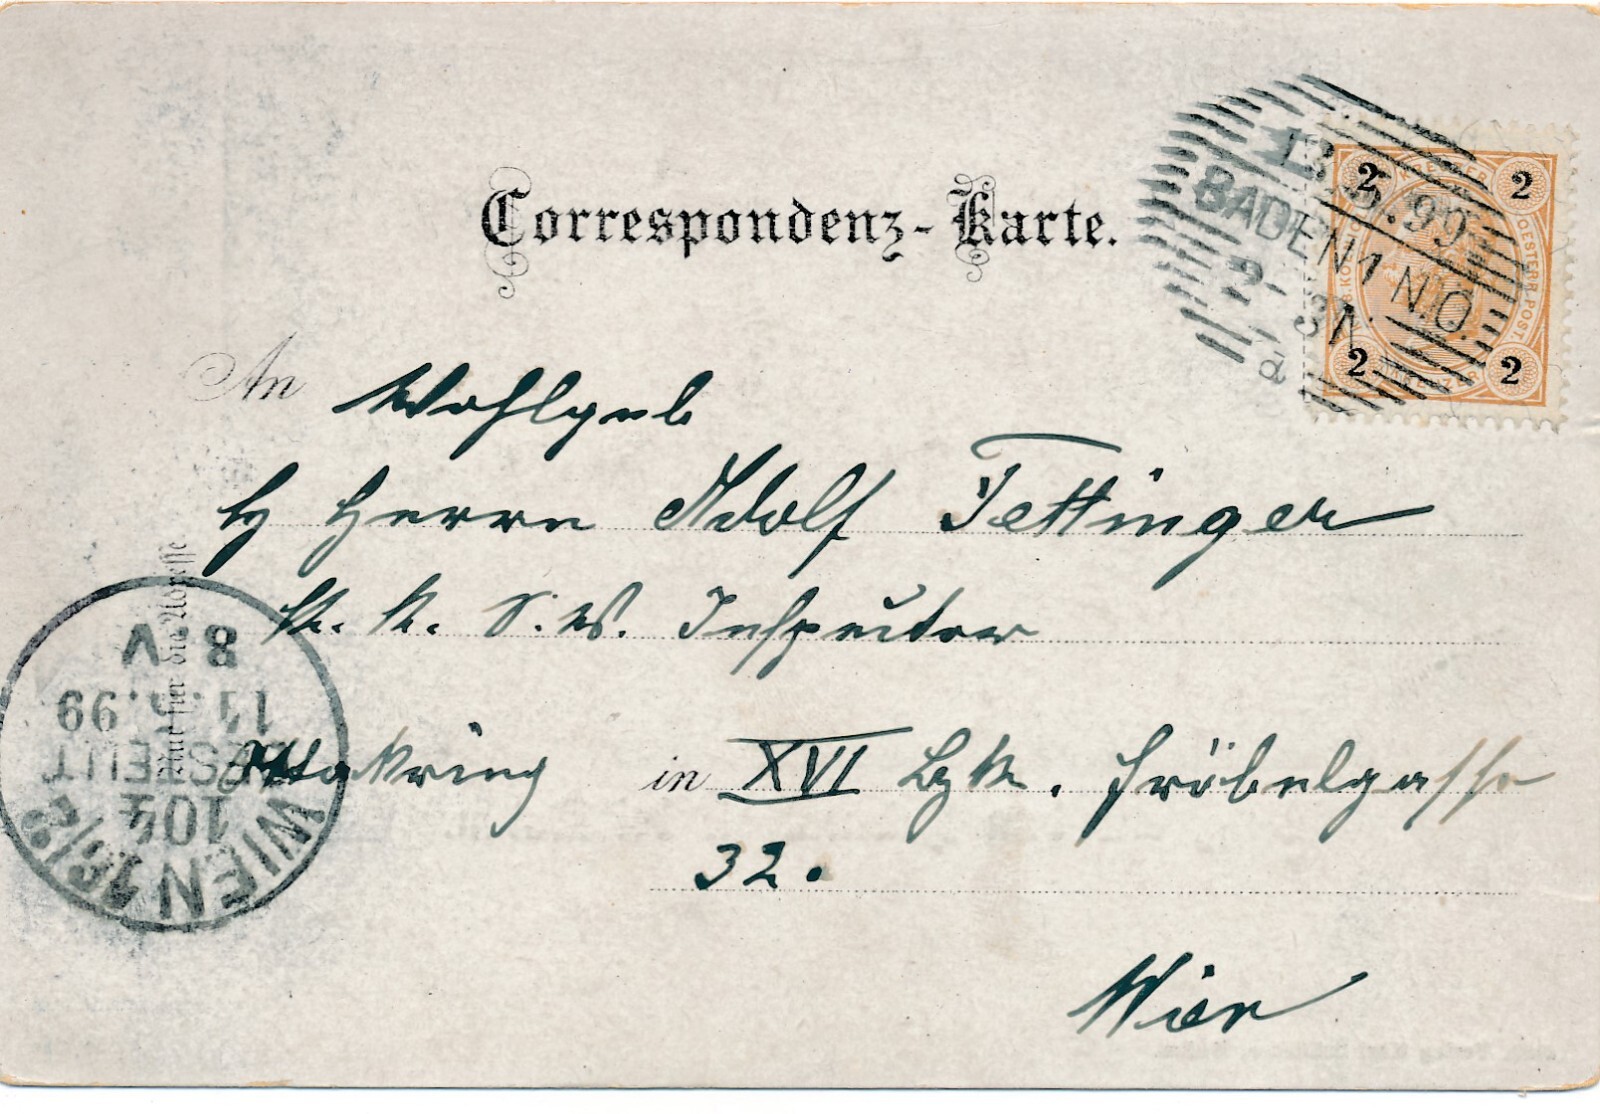 Correspondenz-Karte.
13.5.99
BADEN 1 N.Ö.
2-3N.
a
2 2
2 2
An Wohlgeb
H Herrn Adolf Tettinger
K. K. S. W. Inspector
Ottakring in XVI Bzk. Fröbelgasse
32.
Wien
Nur für die Adresse
8 V
.99
BESTELLT
104
WIEN 16/2